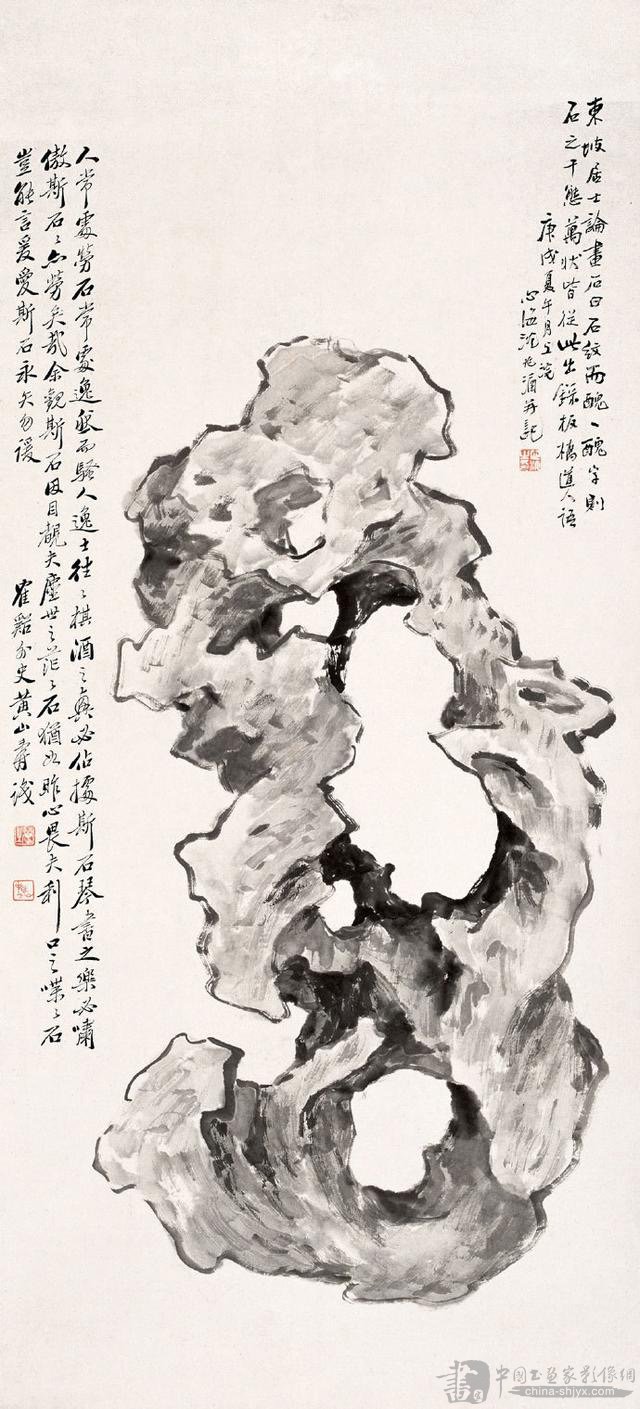 東坡居士論畫石曰石紋而醜一醜字則
石之千態萬狀皆從此出錄板橋道人語
庚戌夏午月上浣
心海沈兆涵并記
人常處勞石常處逸然而騷人逸士往〻棋酒之興必佔據斯石琴書之樂必嘯
傲斯石〻亦勞矣哉余觀斯石因目覩夫塵世之茫〻石猶如昨心畏夫利口之喋〻石
豈能言爰愛斯石永矢勿諼
崔谿外史黃山壽識
中国书画家影像網
china-shjyx.com